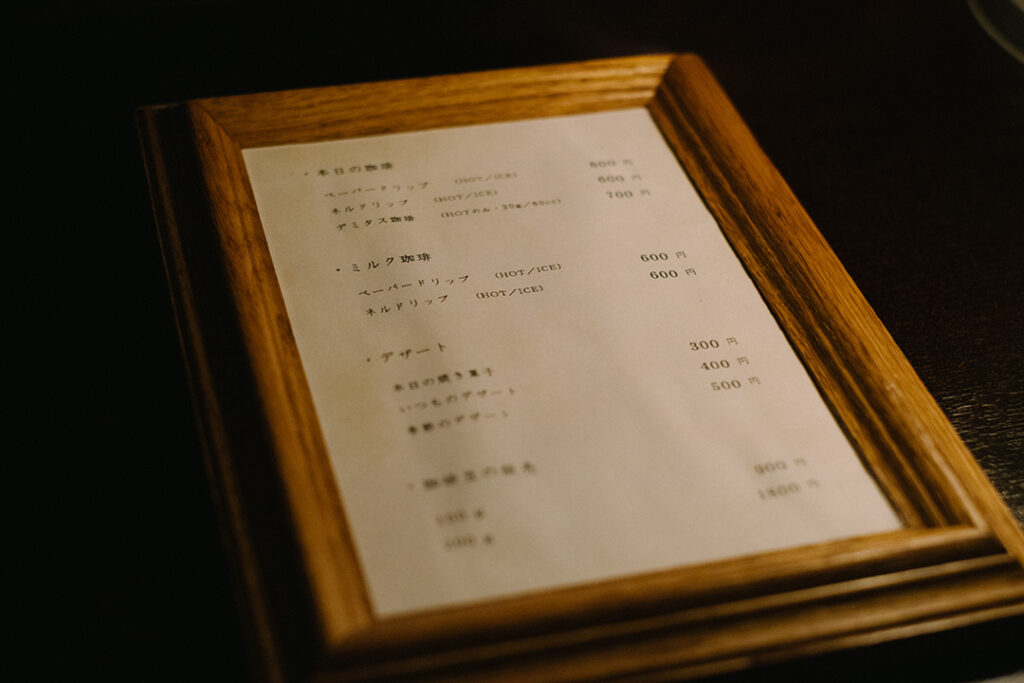 ・本日の珈琲
ペーパードリップ (HOT/ICE) 600 円
ネルドリップ (HOT/ICE) 600 円
デミタス珈琲 (HOTのみ・30g/60cc) 700 円
・ミルク珈琲
ペーパードリップ (HOT/ICE) 600 円
ネルドリップ (HOT/ICE) 600 円
・デザート
本日の焼き菓子 300 円
いつものデザート 400 円
季節のデザート 500 円
・珈琲豆の販売
100 g 900 円
200 g